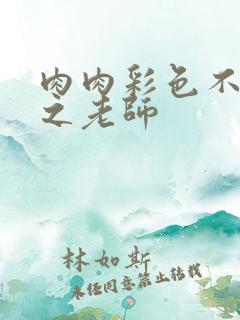 肉肉彩色不
之老師
林如斯
未经同意禁止转载